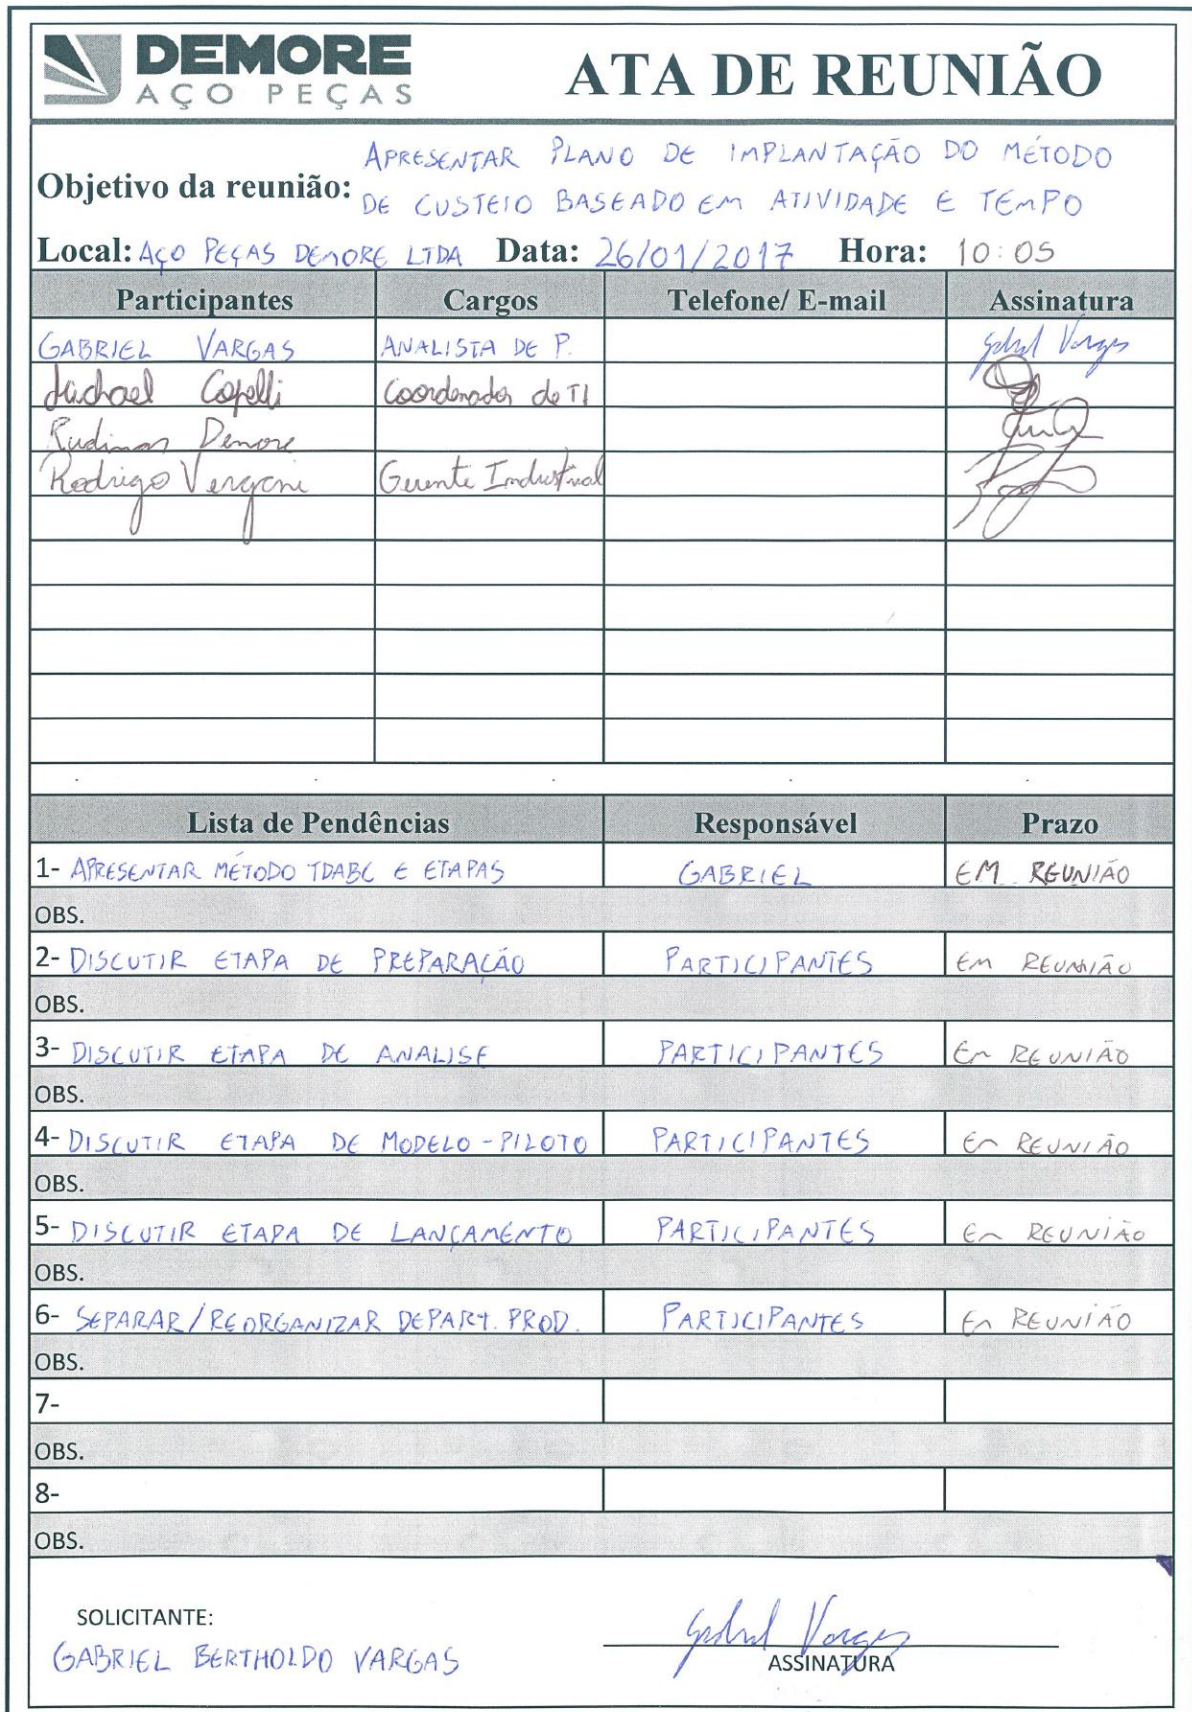 DEMORE
AÇO PEÇAS
ATA DE REUNIÃO
Objetivo da reunião: APRESENTAR PLANO DE IMPLANTAÇÃO DO MÉTODO
DE CUSTEIO BASEADO EM ATIVIDADE E TEMPO
Local: AÇO PEÇAS DEMORE LTDA Data: 26/01/2017 Hora: 10:05
Participantes Cargos Telefone/ E-mail Assinatura
GABRIEL VARGAS ANALISTA DE P. Gabriel Vargas
Copelli Coordenador de TI
Rudimar Demore
Rodrigo Vergani Gerente Industrial
Lista de Pendências Responsável Prazo
1- APRESENTAR MÉTODO TDABC E ETAPAS GABRIEL EM REUNIÃO
OBS.
2- DISCUTIR ETAPA DE PREPARAÇÃO PARTICIPANTES EM REUNIÃO
OBS.
3- DISCUTIR ETAPA DE ANALISE PARTICIPANTES EM REUNIÃO
OBS.
4- DISCUTIR ETAPA DE MODELO-PILOTO PARTICIPANTES EM REUNIÃO
OBS.
5- DISCUTIR ETAPA DE LANÇAMENTO PARTICIPANTES EM REUNIÃO
OBS.
6- SEPARAR/REORGANIZAR DEPART. PROD. PARTICIPANTES EM REUNIÃO
OBS.
7-
OBS.
8-
OBS.
SOLICITANTE:
GABRIEL BERTHOLDO VARGAS
Gabriel Vargas
ASSINATURA